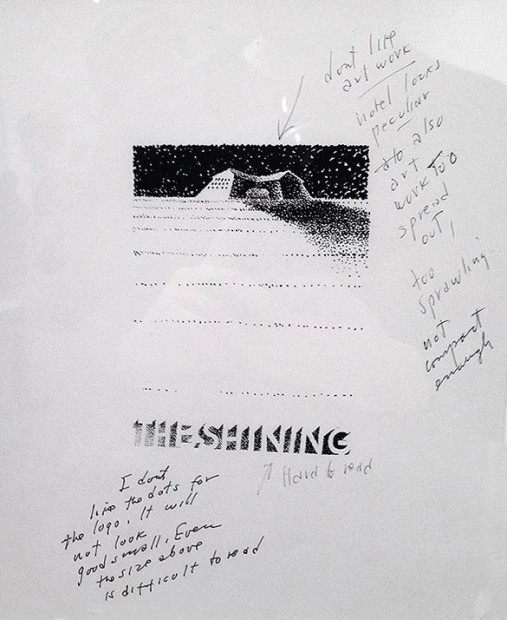 dont like
art work
hotel looks
peculiar
also
art
work too
spread
out!
too
sprawling
not
compact
enough
THE SHINING
Hard to read
I dont
like the dots for
the logo. It will
not look
good small. Even
the size above
is difficult to read